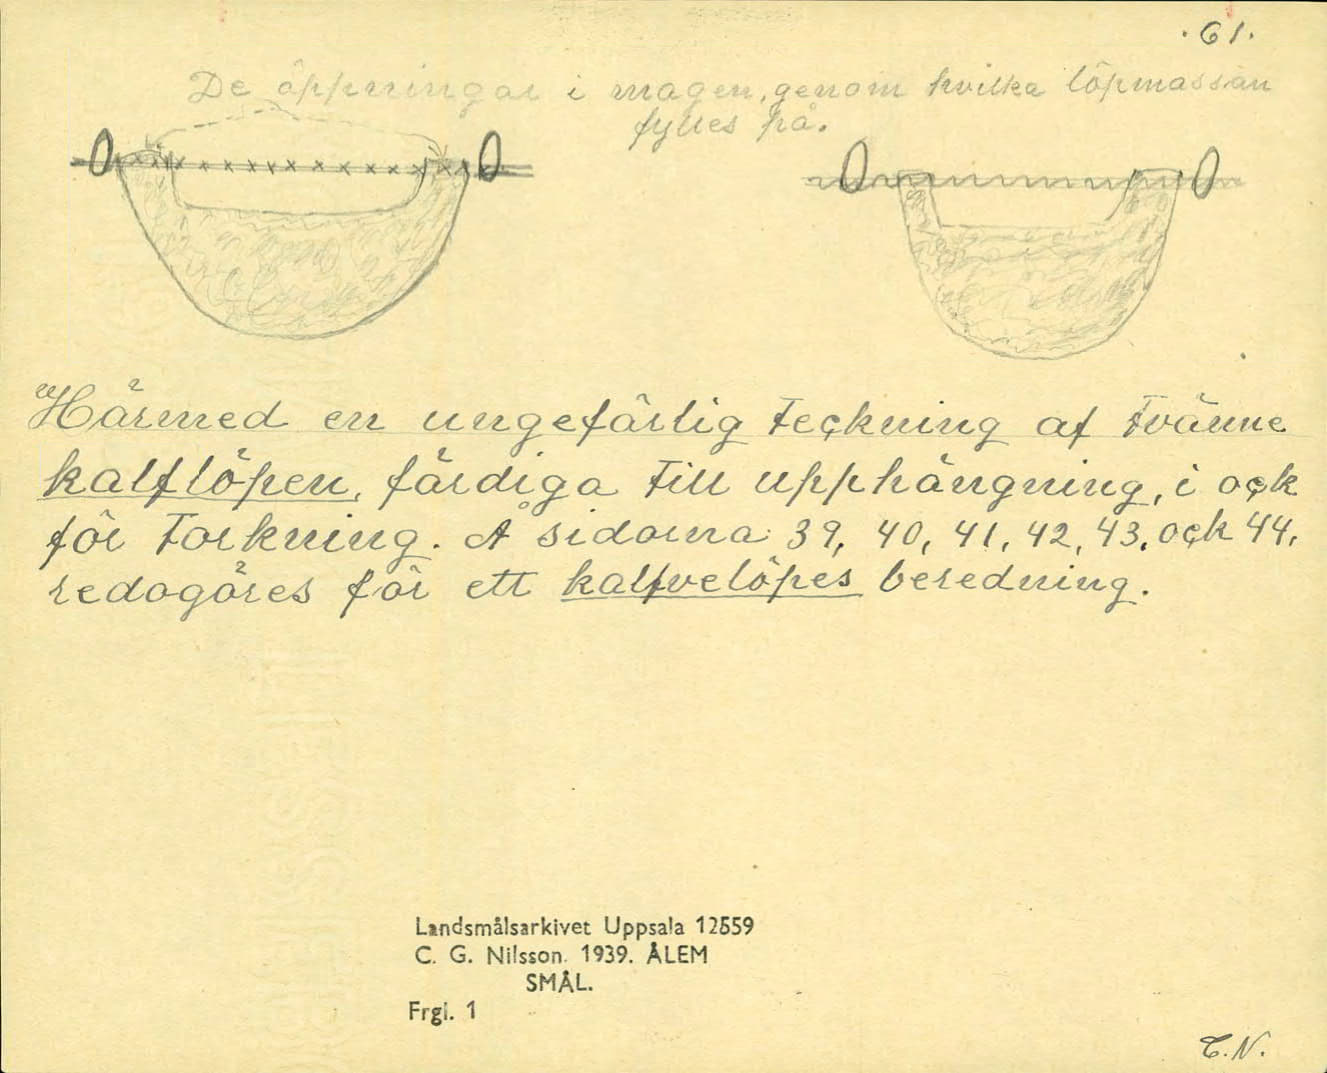 . 61.
De öppningar i magen, genom hvilka löpmassan
fylles på.
Härmed en ungefärlig teckning af tvänne
kalflöpen, färdiga till upphängning, i ock
för torkning. Å sidorna 39, 40, 41, 42, 43, ock 44,
redogöres för ett kalfvelöpes beredning.
Landsmålsarkivet Uppsala 12559
C. G. Nilsson. 1939. ÅLEM
SMÅL.
Frgl. 1
C. N.